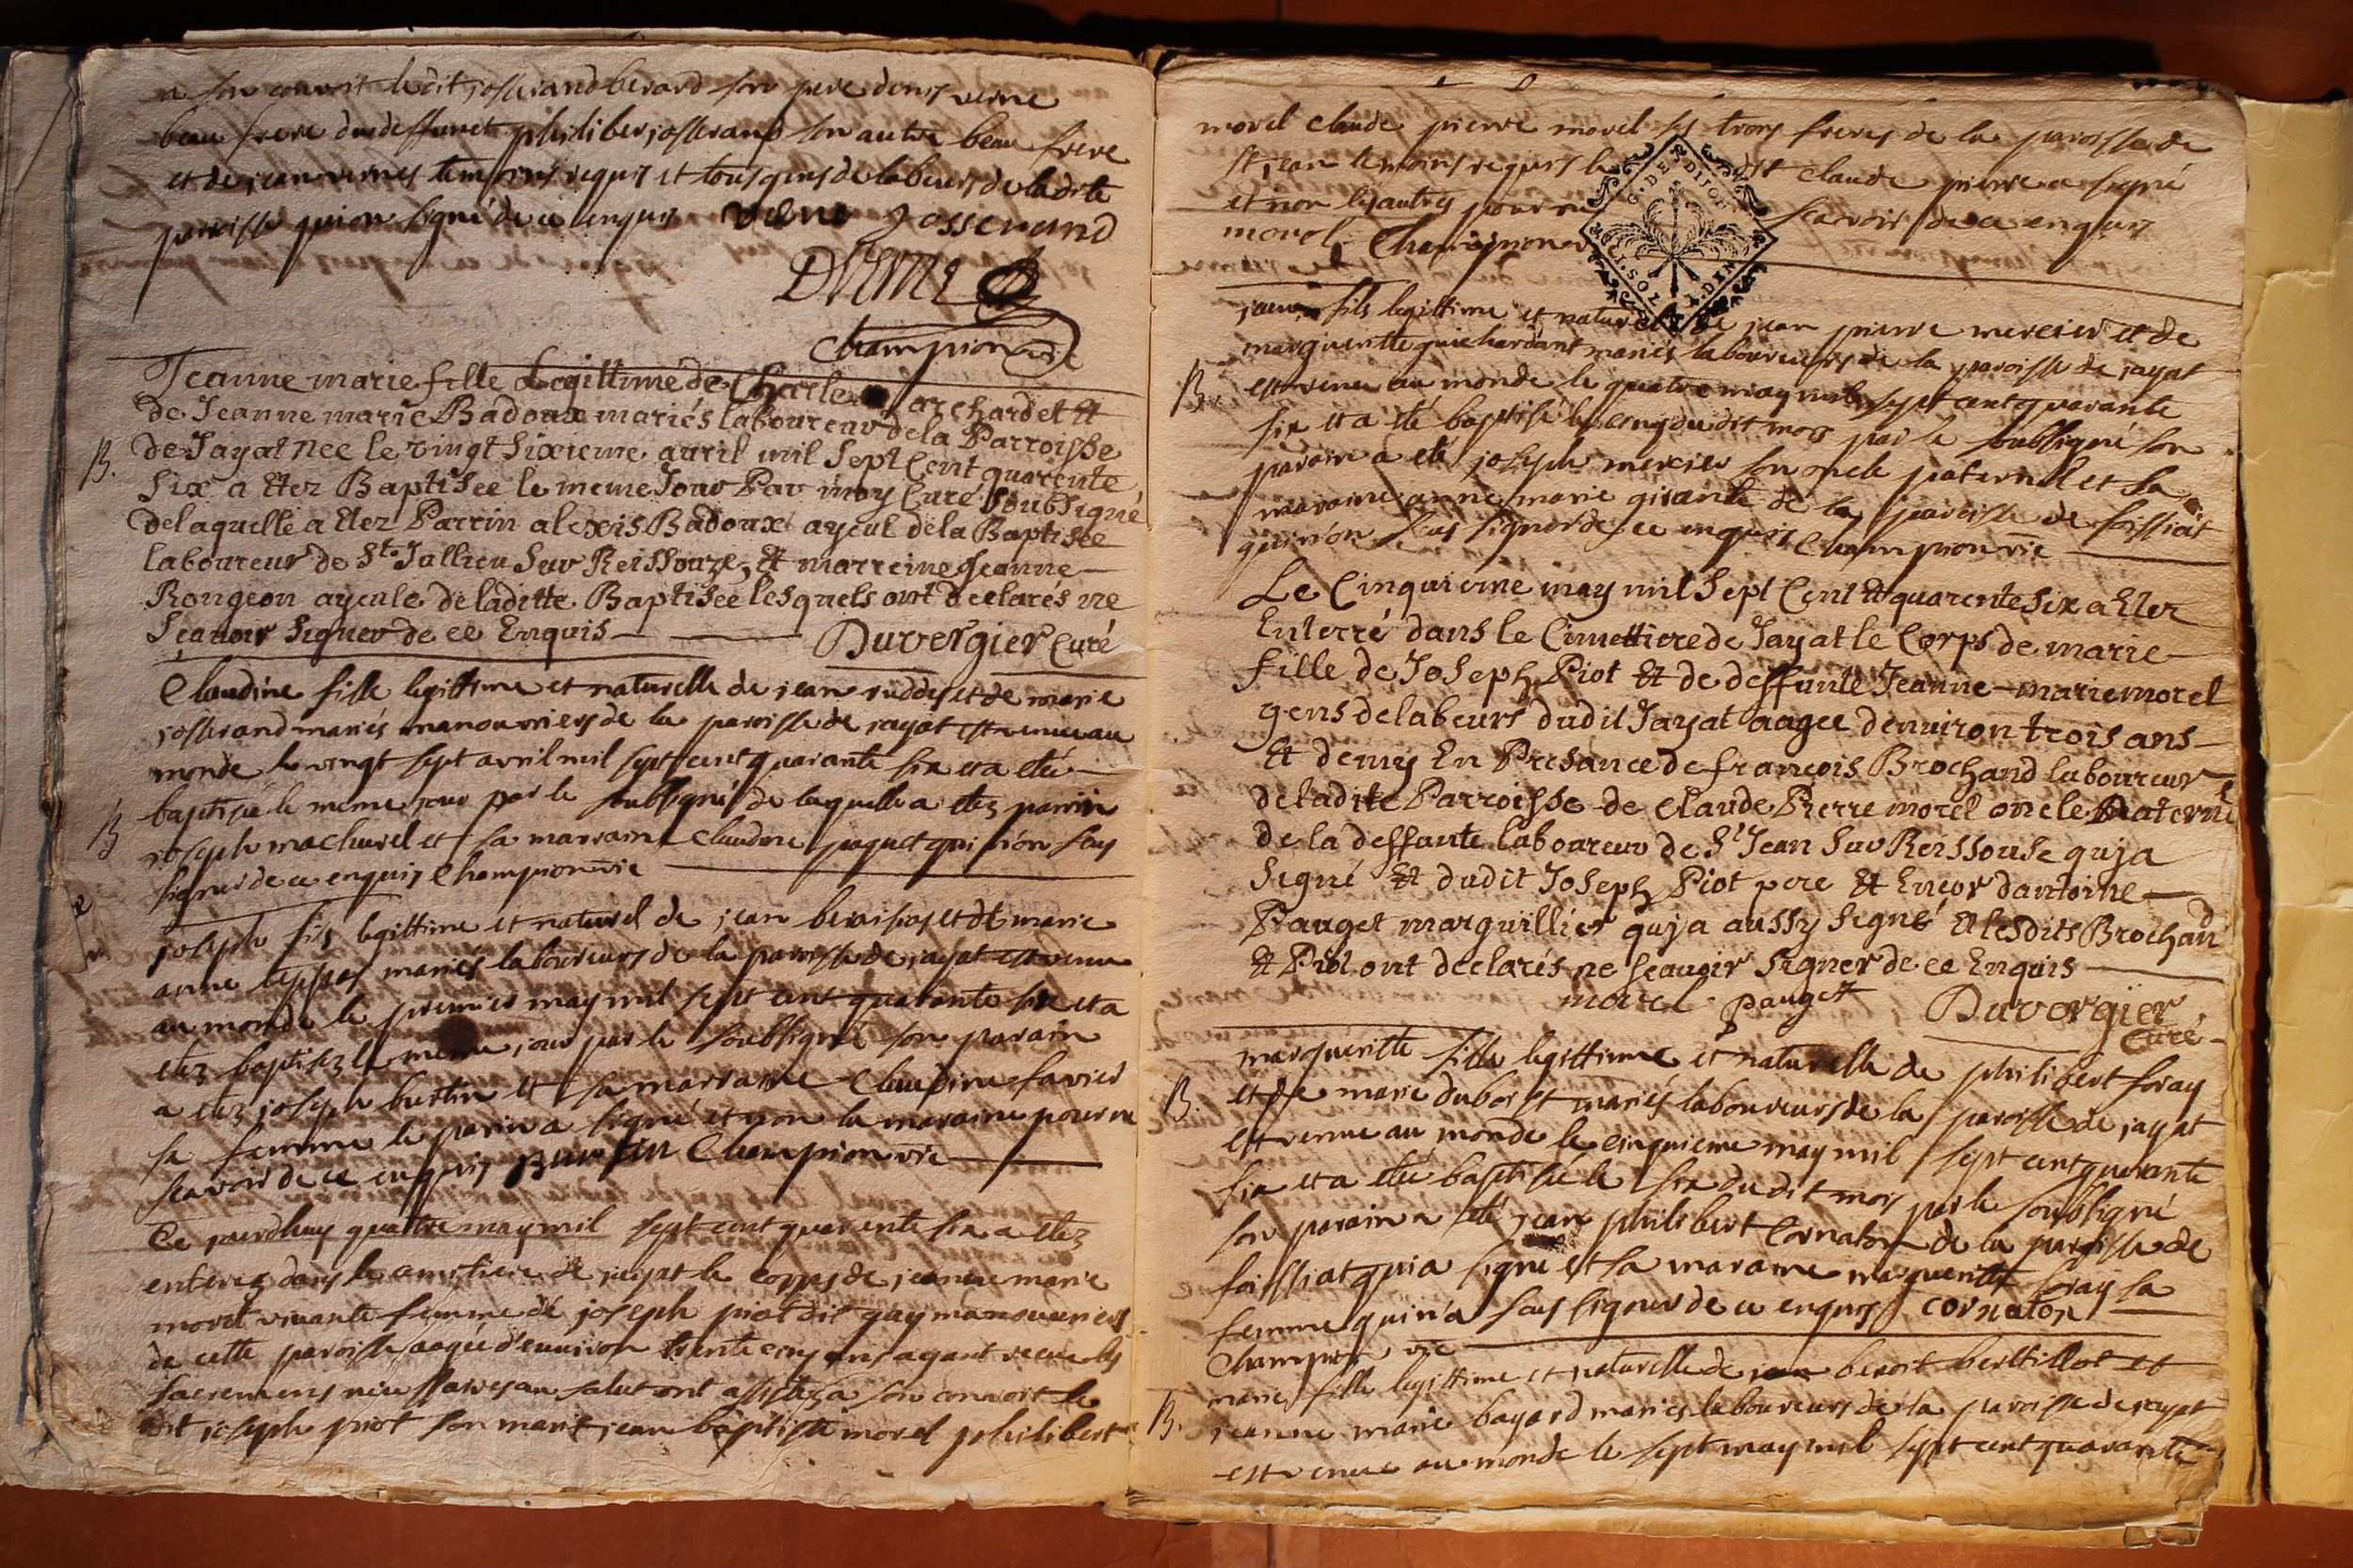 a son convoit ledit josserand berard son pere denis verne
beau frere du deffunct philiber josserand son autre beau frere
et de jean vernes temoins requis et tous gens de labeurs de la dite
paroisse qui on signé de ce enquis verne Josserand
Dverne
Champion vic
Jeanne marie fille Legittime de Charle Marchardet Et
de Jeanne marie Badoux mariés laboureur de la Parroisse
B. de Jayat Née le vingt Sixieme avril mil Sept Cent quarente
Six a Etez Baptisee le meme Jour Par moy Curé Soubsigné
de laquelle a Etez Parrin alexis Badoux ayeul de la Baptisée
laboureur de St. Jullien Sur Reissouze, Et marreine Jeanne
Rongeon ayeule de laditte Baptisée lesquels ont declarés ne
Sçavoir Signer de ce Enquis Duvergier Curé
Claudine fille legittime et naturelle de jean ruddes et de marie
josserand mariés manouvriers de la paroisse de jayat est venue au
monde le vingt sept avril mil sept cent quarante six et a eté
B baptisée le meme jour par le soubsigné de laquelle a etez parrin
joseph machurel et sa marraine Claudine paquet qui n'on say
signer de ce enquis Champion vic
joseph fils legittime et naturel de jean et de marie
anne mariés laboureurs de la paroisse de jayat est venu
au monde le premier may mil sept cent quarante six et a
etez baptisez le meme jour par le soubsigné son parain
a etez joseph burtin et sa marraine Claudine favier
sa femme le parin a signé et non la maraine pour ne
scavoir de ce enquis Burtin Champion vic
Ce jourdhuy quattre may mil sept cent quarente six a etez
enterez dans le cimetiere de jayat le corps de jeanne marie
morel vivante femme de joseph piot dit guy manouvriers
de cette paroisse aagée d'environ trente cinq ans ayant receue les
sacremens necessaires au salut ont assistez a son convoit le
dit joseph piot son marit jean baptiste morel philibert
morel claude pierre morel ses trois freres de la paroisse de
st jean temoins requis le dit claude pierre a signé
et non les autres pour ne scavoir de ce enquis
morel Champion v
G. DE DIJON
jean fils legittime et naturel de jean pierre mercier et de
margueritte guichardant mariés laboureurs de la paroisse de jayat
B. est venu au monde le quatre may mil sept cent quarante
six et a été baptisé le cinq du dit mois par le soubsigné son
parain a eté joseph mercier son oncle paternel et sa
maraine anne marie girande de la paroisse de foissiat
qui n'on sus signer de ce enquis Champion vic
Le Cinquieme may mil Sept Cent Et quarente Six a Etez
Enterré dans le Cimettiere de Jayat le Corps de marie
fille de Joseph Piot Et de deffunte Jeanne marie morel
gens de labeurs dudit Jayat aagee denviron trois ans
Et demy En Presance de françois Brochand laboureur
de ladite Parroisse de Claude Pierre morel oncle Maternel
de la deffunte laboureur de St Jean Sur Reissouse qui a
Signé Et dudit Joseph Piot pere Et Encor dantoine
Pauget marguillier qui a aussy Signé Et lesdits Brochand
Et Piot ont declarés ne Sçavoir Signer de ce Enquis
morel pauget Duvergier
Curé
marguerite fille legittime et naturelle de philibert foray
B. et de marie duborst mariés laboureurs de la paroisse de jayat
est venue au monde le cinquieme may mil sept cent quarante
six et a eté baptisée le six du dit mois par le soubsigné
son parain a eté jean philibert Cornaton de la paroisse de
foissiat qui a signe et sa maraine marguerite foray sa
femme qui n'a sus signer de ce enquis cornaton
Champion vic
marie fille legittime et naturelle de benoit berthillot et
B. jeanne marie bayard mariés laboureurs de la paroisse de jayat
est venue au monde le sept may mil sept cent quarante